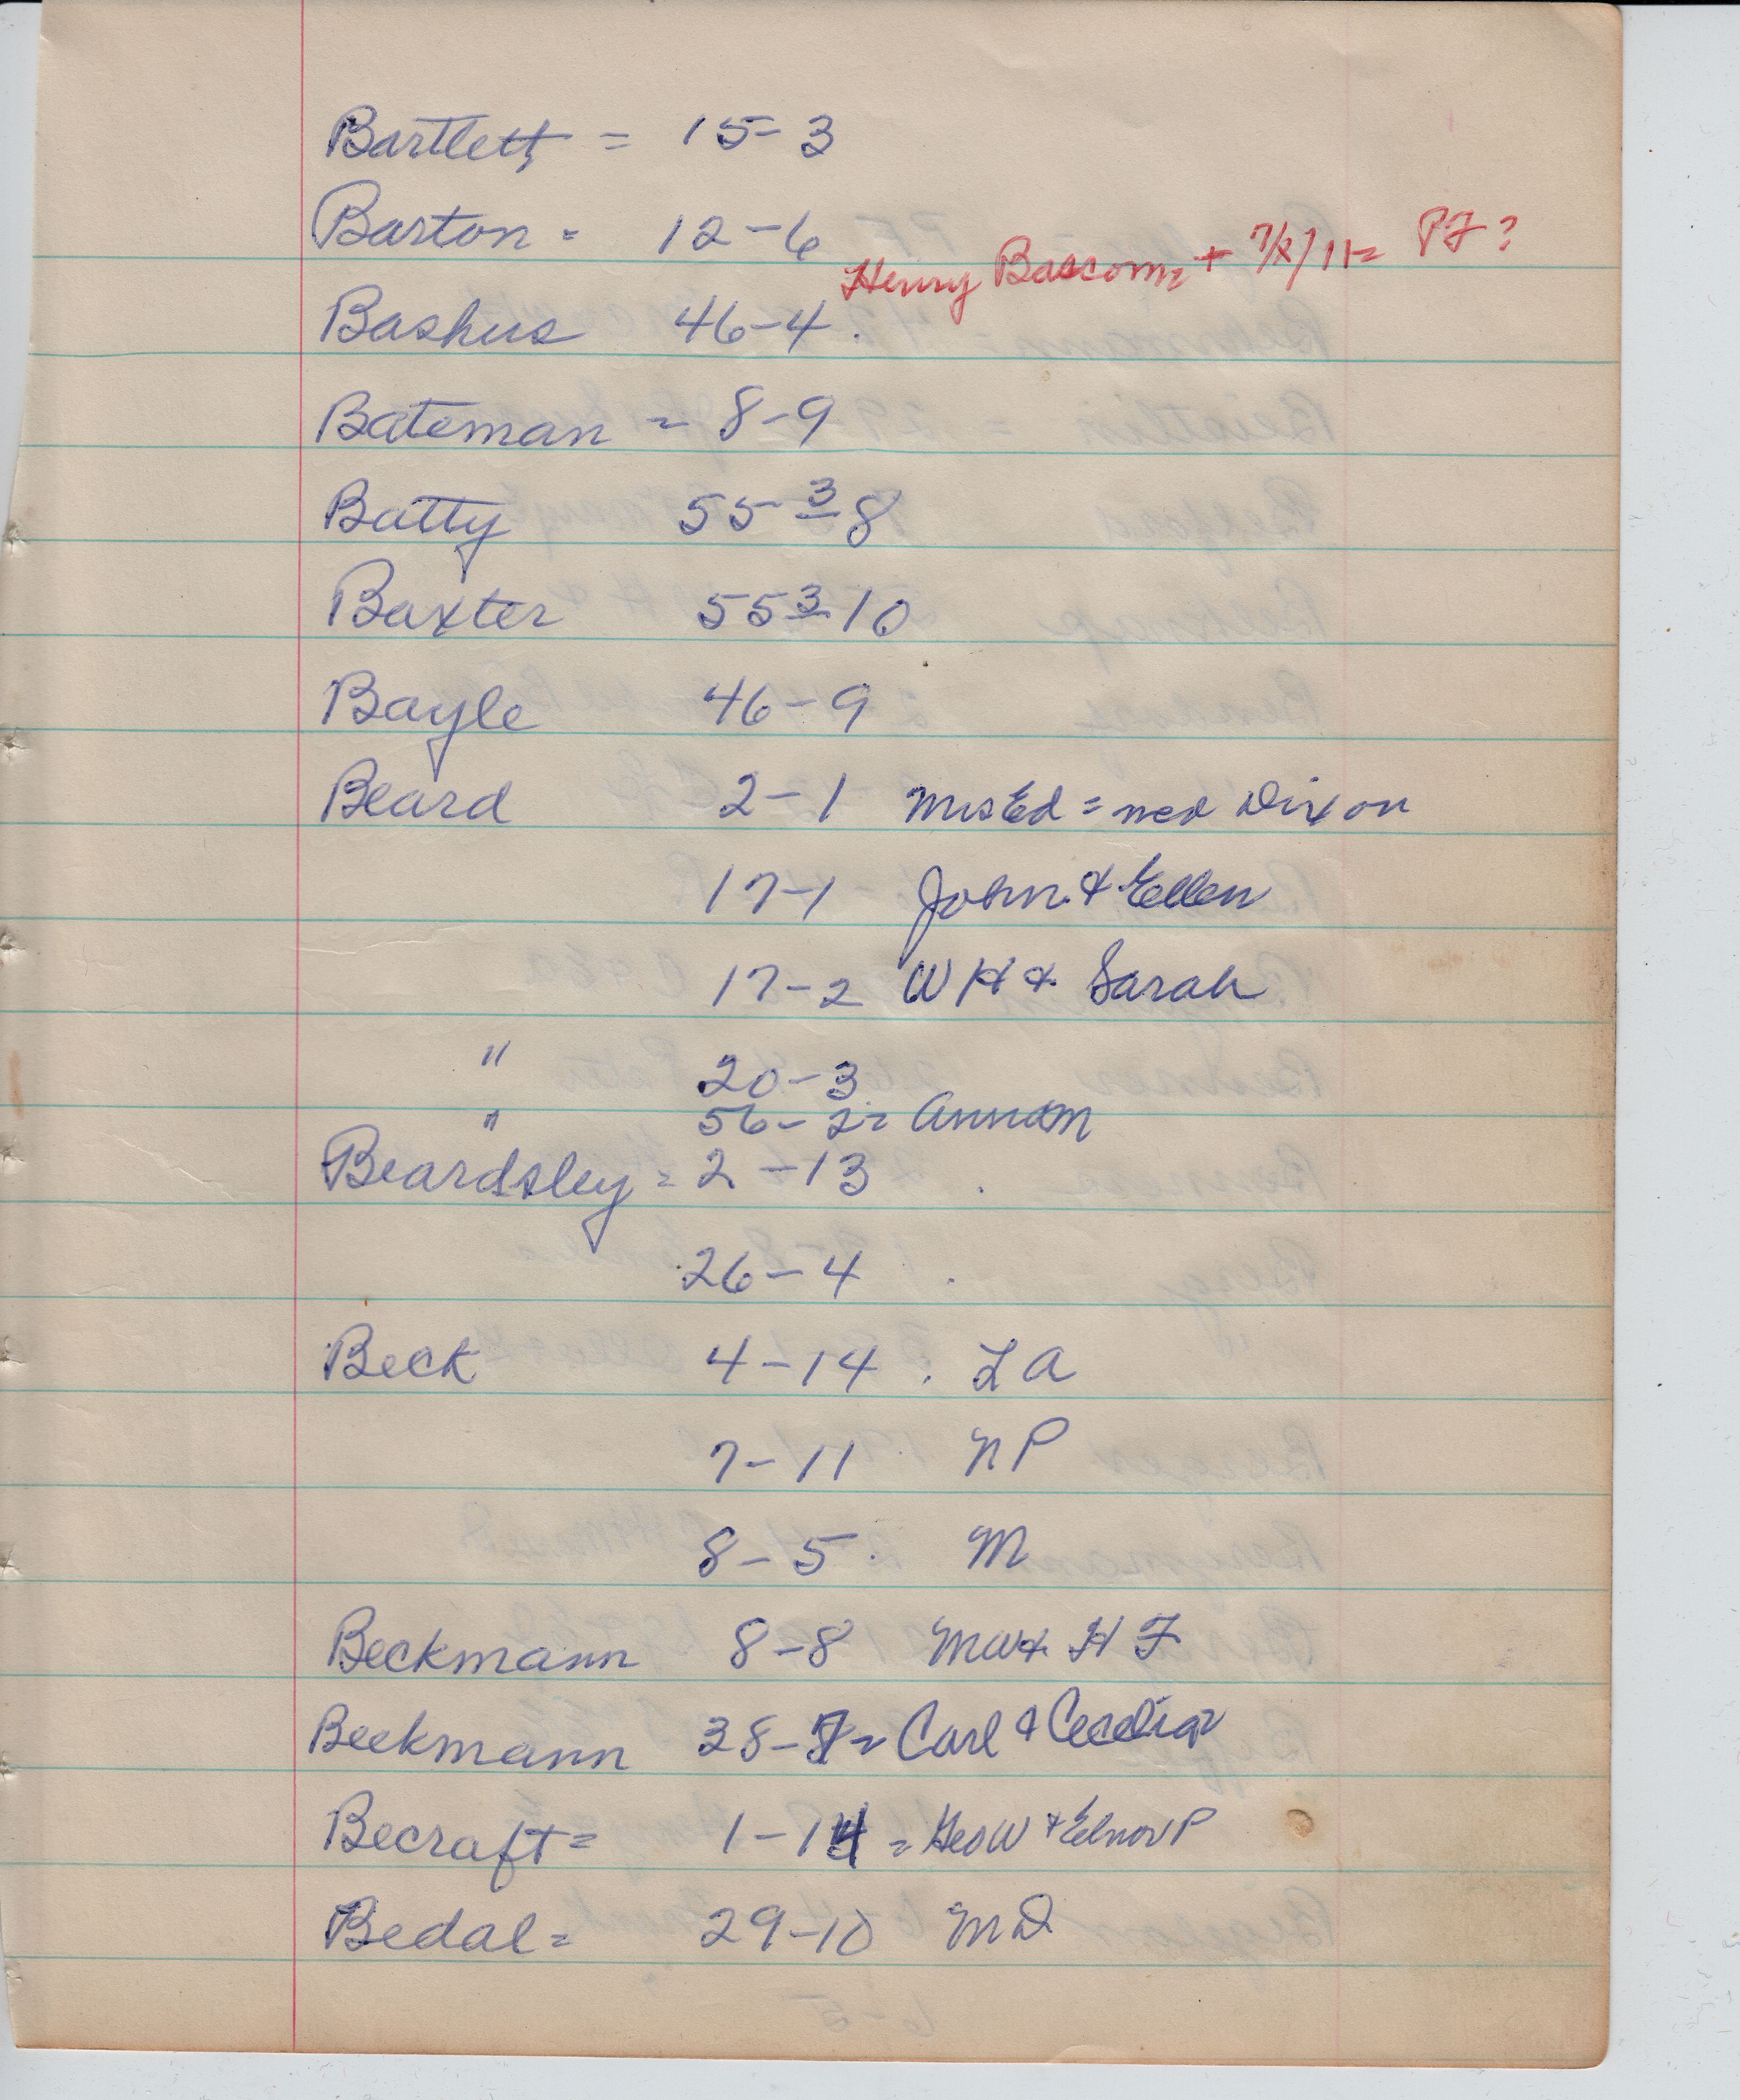 Bartlett = 15-3
Barton = 12-6
Henry Bascom = + 7/8/11 = PF ?
Bashus 46-4.
Bateman = 8-9
Batty 55-3-8
Baxter 55-3-10
Bayle 46-9
Beard 2-1 Mrs Ed = nee Dixon
17-1 John & Ellen
17-2 W H & Sarah
" 20-3
" 56-2= Anna M
Beardsley = 2-13
26-4
Beck 4-14. L A
7-11 N P
8-5. M
Beckmann 8-8 MW & H F
Beekmann 38-7= Carl & Cecelia
Becraft = 1-14 = Geo W & Elnor P
Bedal = 29-10 M D